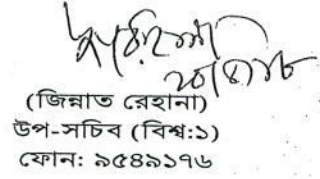 (জিন্নাত রেহানা)
উপ-সচিব (বিশ্ব:১)
ফোন: ৯৫৪৯১৭৬